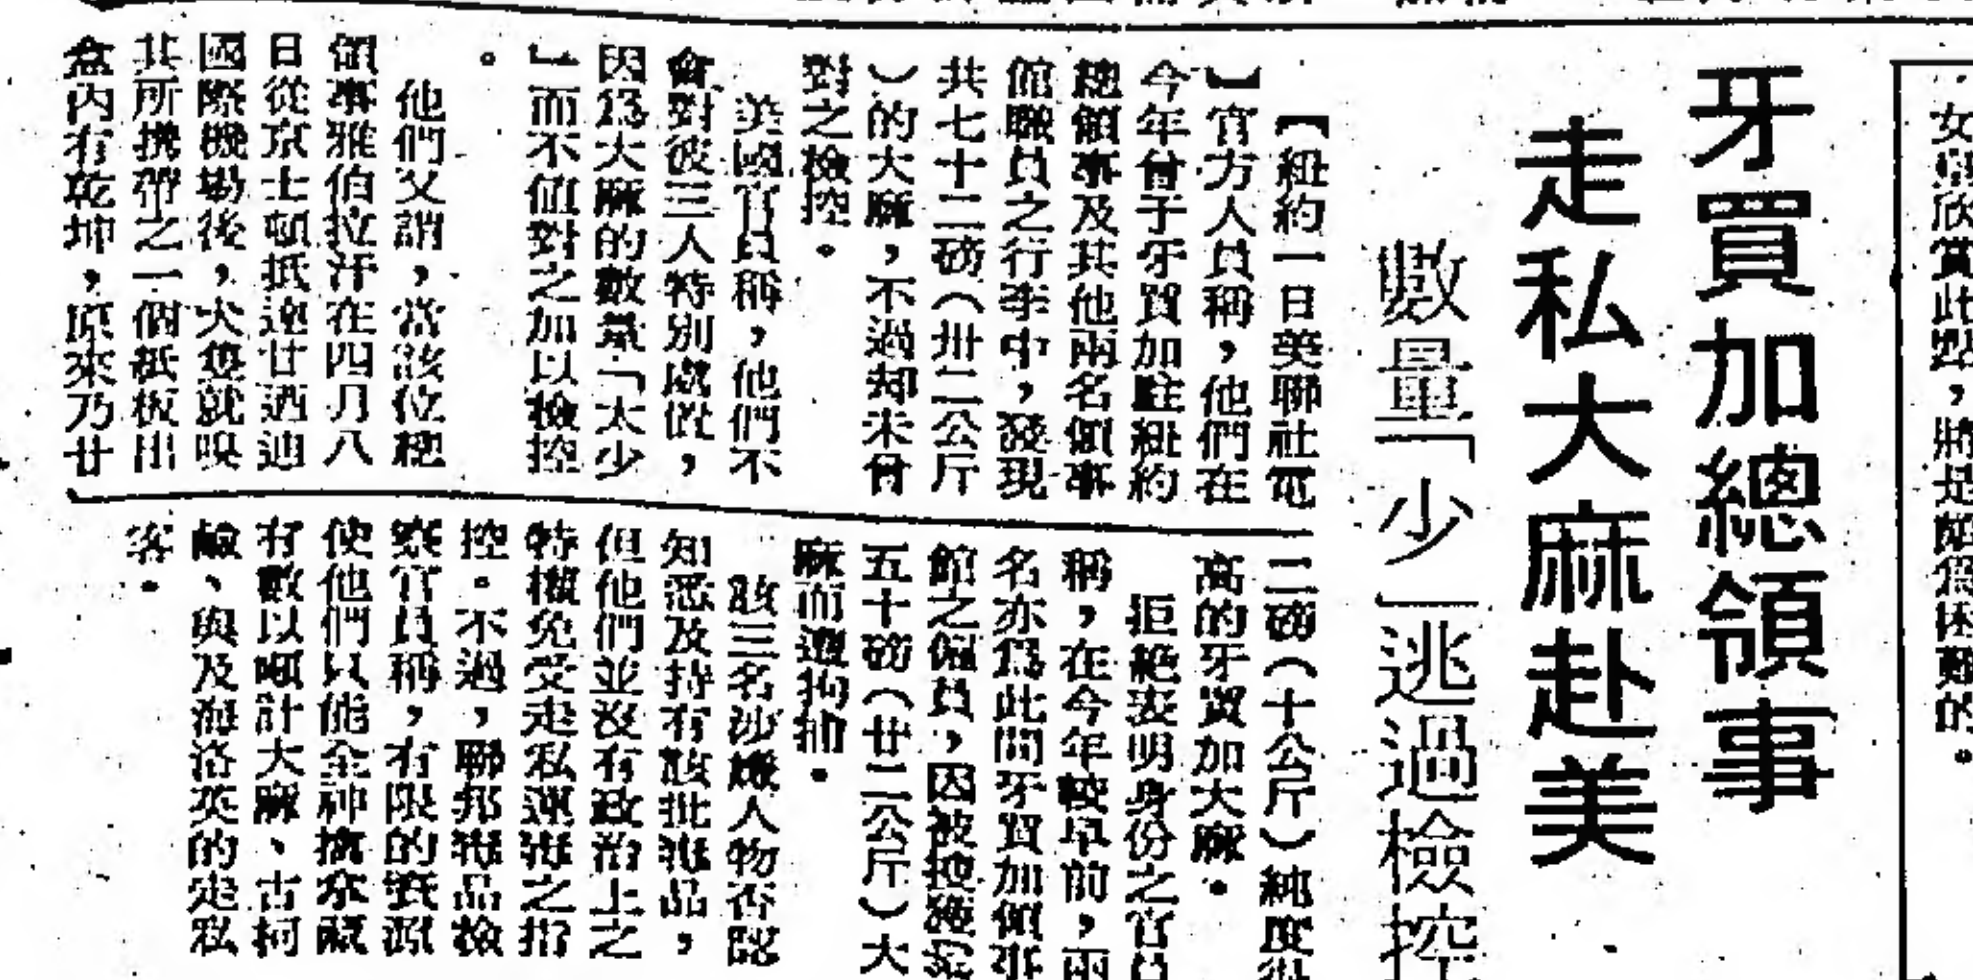 牙買加總領事
走私大麻赴美
數量「少」逃過檢控
【紐約一日美聯社電
】官方人員稱，他們在
今年曾于牙買加駐紐約
總領事及其他兩名領事
館職員之行李中，發現
共七十二磅（卅二公斤
）的大麻，不過却未曾
對之檢控。
美國官員稱，他們不
會對彼三人特別處置，
因爲大麻的數量「太少
」而不值對之加以檢控
。
他們又謂，當該位總
領事雅伯拉汗在四月八
日從京士頓抵達甘迺迪
國際機場後，犬隻就嗅
其所携帶之一個紙板出
盒內有乾坤，原來乃廿
二磅（十公斤）純度
高的牙買加大麻。
拒絶表明身份之官員
稱，在今年較早前，兩
名亦爲此間牙買加領事
館之僱員，因被搜獲
五十磅（廿二公斤）大
麻而遭拘捕。
該三名涉嫌人物否認
知悉及持有該批毒品，
但他們並沒有政治上之
特權免受走私運毒之指
控。不過，聯邦毒品檢
察官員稱，有限的資源
使他們只能全神擒拿藏
有數以噸計大麻、古柯
鹼、與及海洛英的走私
客。
女皇欣賞此點，將是頗爲困難的。